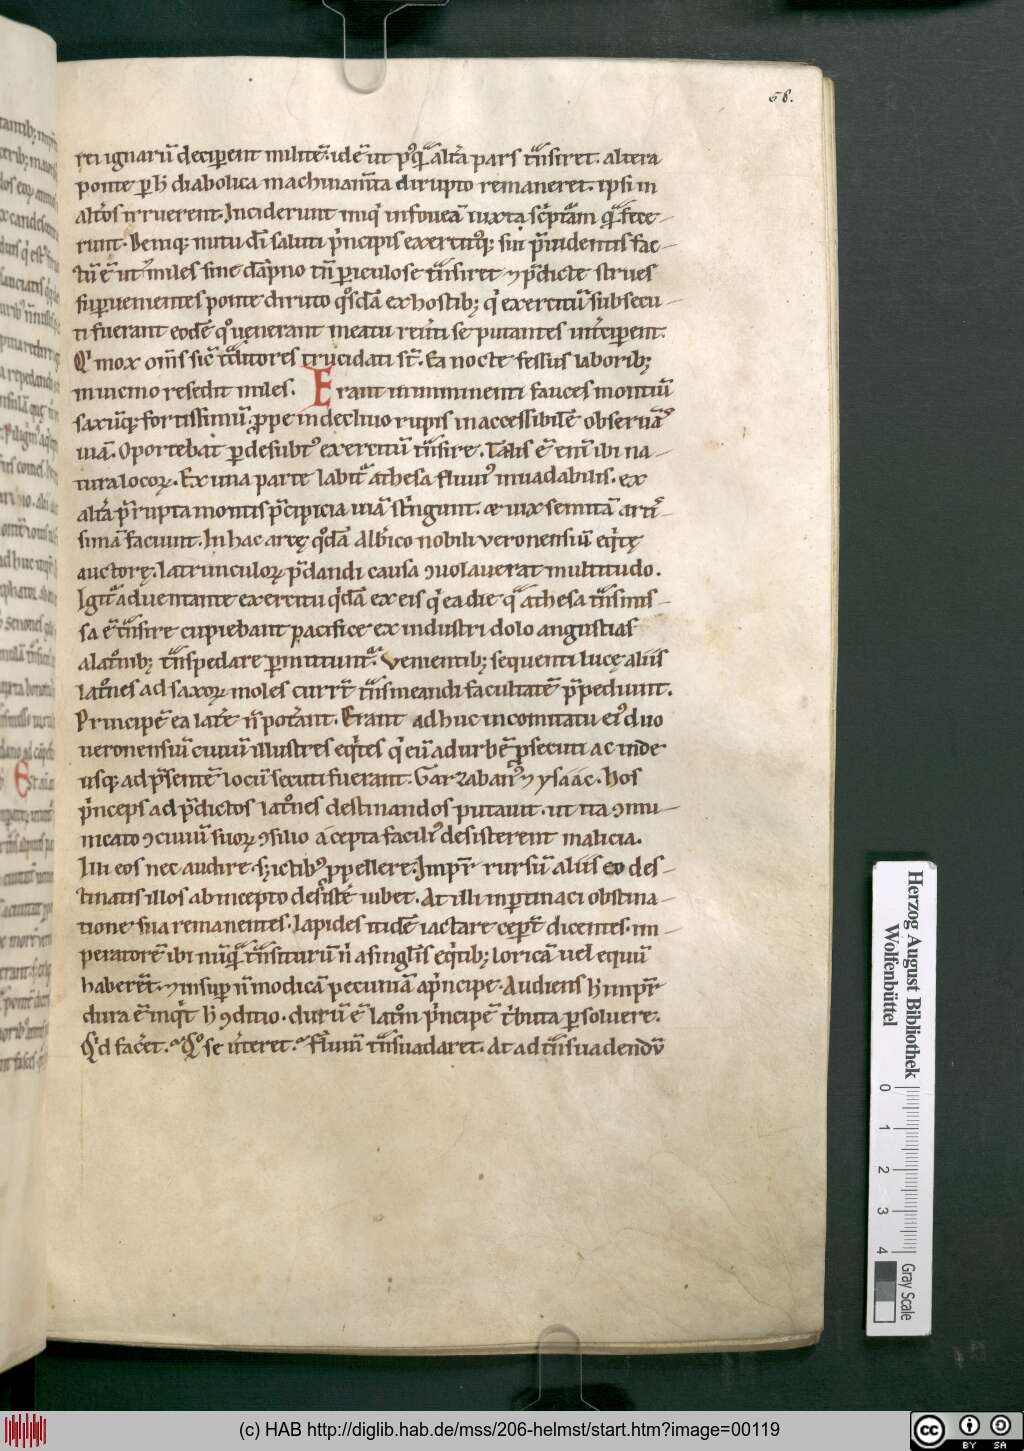 68.
rei ignarũ deciꝑent militẽ. idẽ ut pꝰq̃ alt̃a pars t̃nsiret. altera
ponte ꝑ h̾ diabolica machinam̃ta dirupto remaneret. ipsi in
alt̃os irruerent. Inciderunt iniq̇ in foueã iuxta sc̃pt̃am quã fece-
runt. Deniq; nutu dĩ saluti p̃ncipis exercitusq; sui p̃uidentis fac-
tũ ẽ ut miles sine dãpno tñ ꝑiculose t̃nsiret ⁊ p̃dicte strues
suꝑuenientes ponte diruto q̊sdã ex hostib; q̇ exercitũ subsecu-
ti fuerant eodẽ q̊ uenerant meatu reu̾ti se putantes int̃ciꝑent.
Qⁱ mox om̃s sic̃ t̃ditores trucidati st̃. Ea nocte fessus laborib;
in uicino resedit miles. Erant in imminenti fauces montiũ
saxũq; fortissimũ. ꝓpe in decliuo rupis inaccessibilẽ obseruãs
uiã. Oportebat ꝑ desubtꝰ exercitũ t̃nsire. Talis ẽ eni͂ ibi na-
tura locoꝝ. Ex una parte labit᷑ athesa fluuiꝰ inuadabilis. ex
alt̃a p̃rupta montis p̃cipicia uiã st̃ngunt. ⁊ uix semitã arti-
simã faciunt. In hac arcę q̊dã Alb̾ico nobili veronensiũ eq̇tę
auctorę. latrunculoꝝ p̃dandi causa ↄuolauerat multitudo.
Igit᷑ aduentante exercitu q̇dã ex eis q̇ ea die q̃ athesa t̃nsmis-
sa ẽ t̃nsire cupiebant pacifice ex industri dolo angustias
a lat̊nib; t̃nspedare ꝑmittunt᷑. Venientib; sequenti lucę aliis
lat̊nes ad saxoꝝ moles curr̃t t̃nsmeandi facultatẽ p̃pediunt.
Principẽ ea lat̾e ñ pot̾ant. Erant adhuc in comitatu eiꝰ duo
veronensiũ ciuiũ illustres eq̇tes q̇ eũ ad urbẽ ꝓsecuti ac inde
usq; ad p̃sentẽ locũ secuti fuerant. Garzabanꝰ ⁊ ysaac. Hos
p̃nceps ad p̃dictos lat̊nes destinandos putauit. ut uia ↄmu-
nicato ↄciuiũ suoꝝ ↄsilio a cepta faciliꝰ desisterent malicia.
Illi eos nec audire. s; ictibꝰ ꝓpellere. Imper̃ rursũ aliis eo des-
tinatis illos ab incepto desist̃e iubet. At illi in ꝑtinaci obstina-
tione sua remanentes. lapides itidẽ iactare cepe͂t dicentes. im-
peratorẽ ibi nũq̃ t̃nsiturũ nⁱ a singl̃is eq̇tib; loricã uel equũ
haberet. ⁊ insuꝑ ñ modicã pecuniã a p̃ncipe. Audiens h̾ imper̃
dura ẽ inq̇t h̾ ↄditio. durũ ẽ lat̊ni p̃ncipẽ t̃buta ꝑsoluere.
Qⁱd fac̾et. Q̊ se u̾teret. Fluuiũ t̃nsuadaret. At ad t̃nsuadendũ
Herzog August Bibliothek
Wolfenbüttel
0 1 2 3 4
Gray Scale
(c) HAB http://diglib.hab.de/mss/206-helmst/start.htm?image=00119
cc BY SA